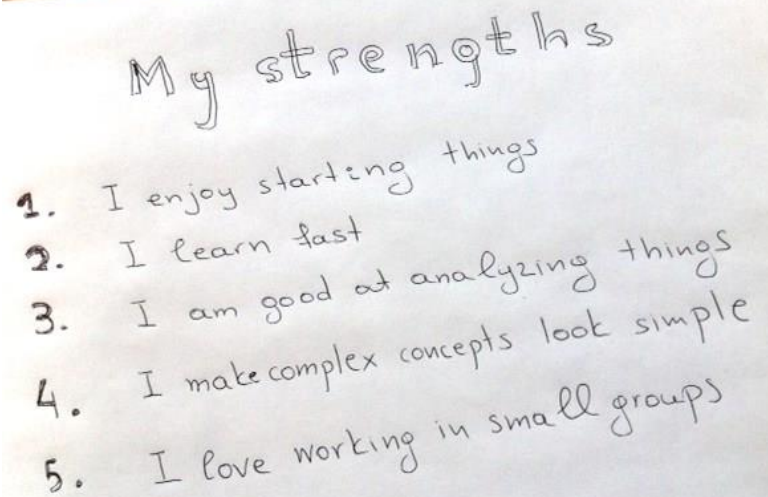 My strengths
1. I enjoy starting things
2. I learn fast
3. I am good at analyzing things
4. I make complex concepts look simple
5. I love working in small groups